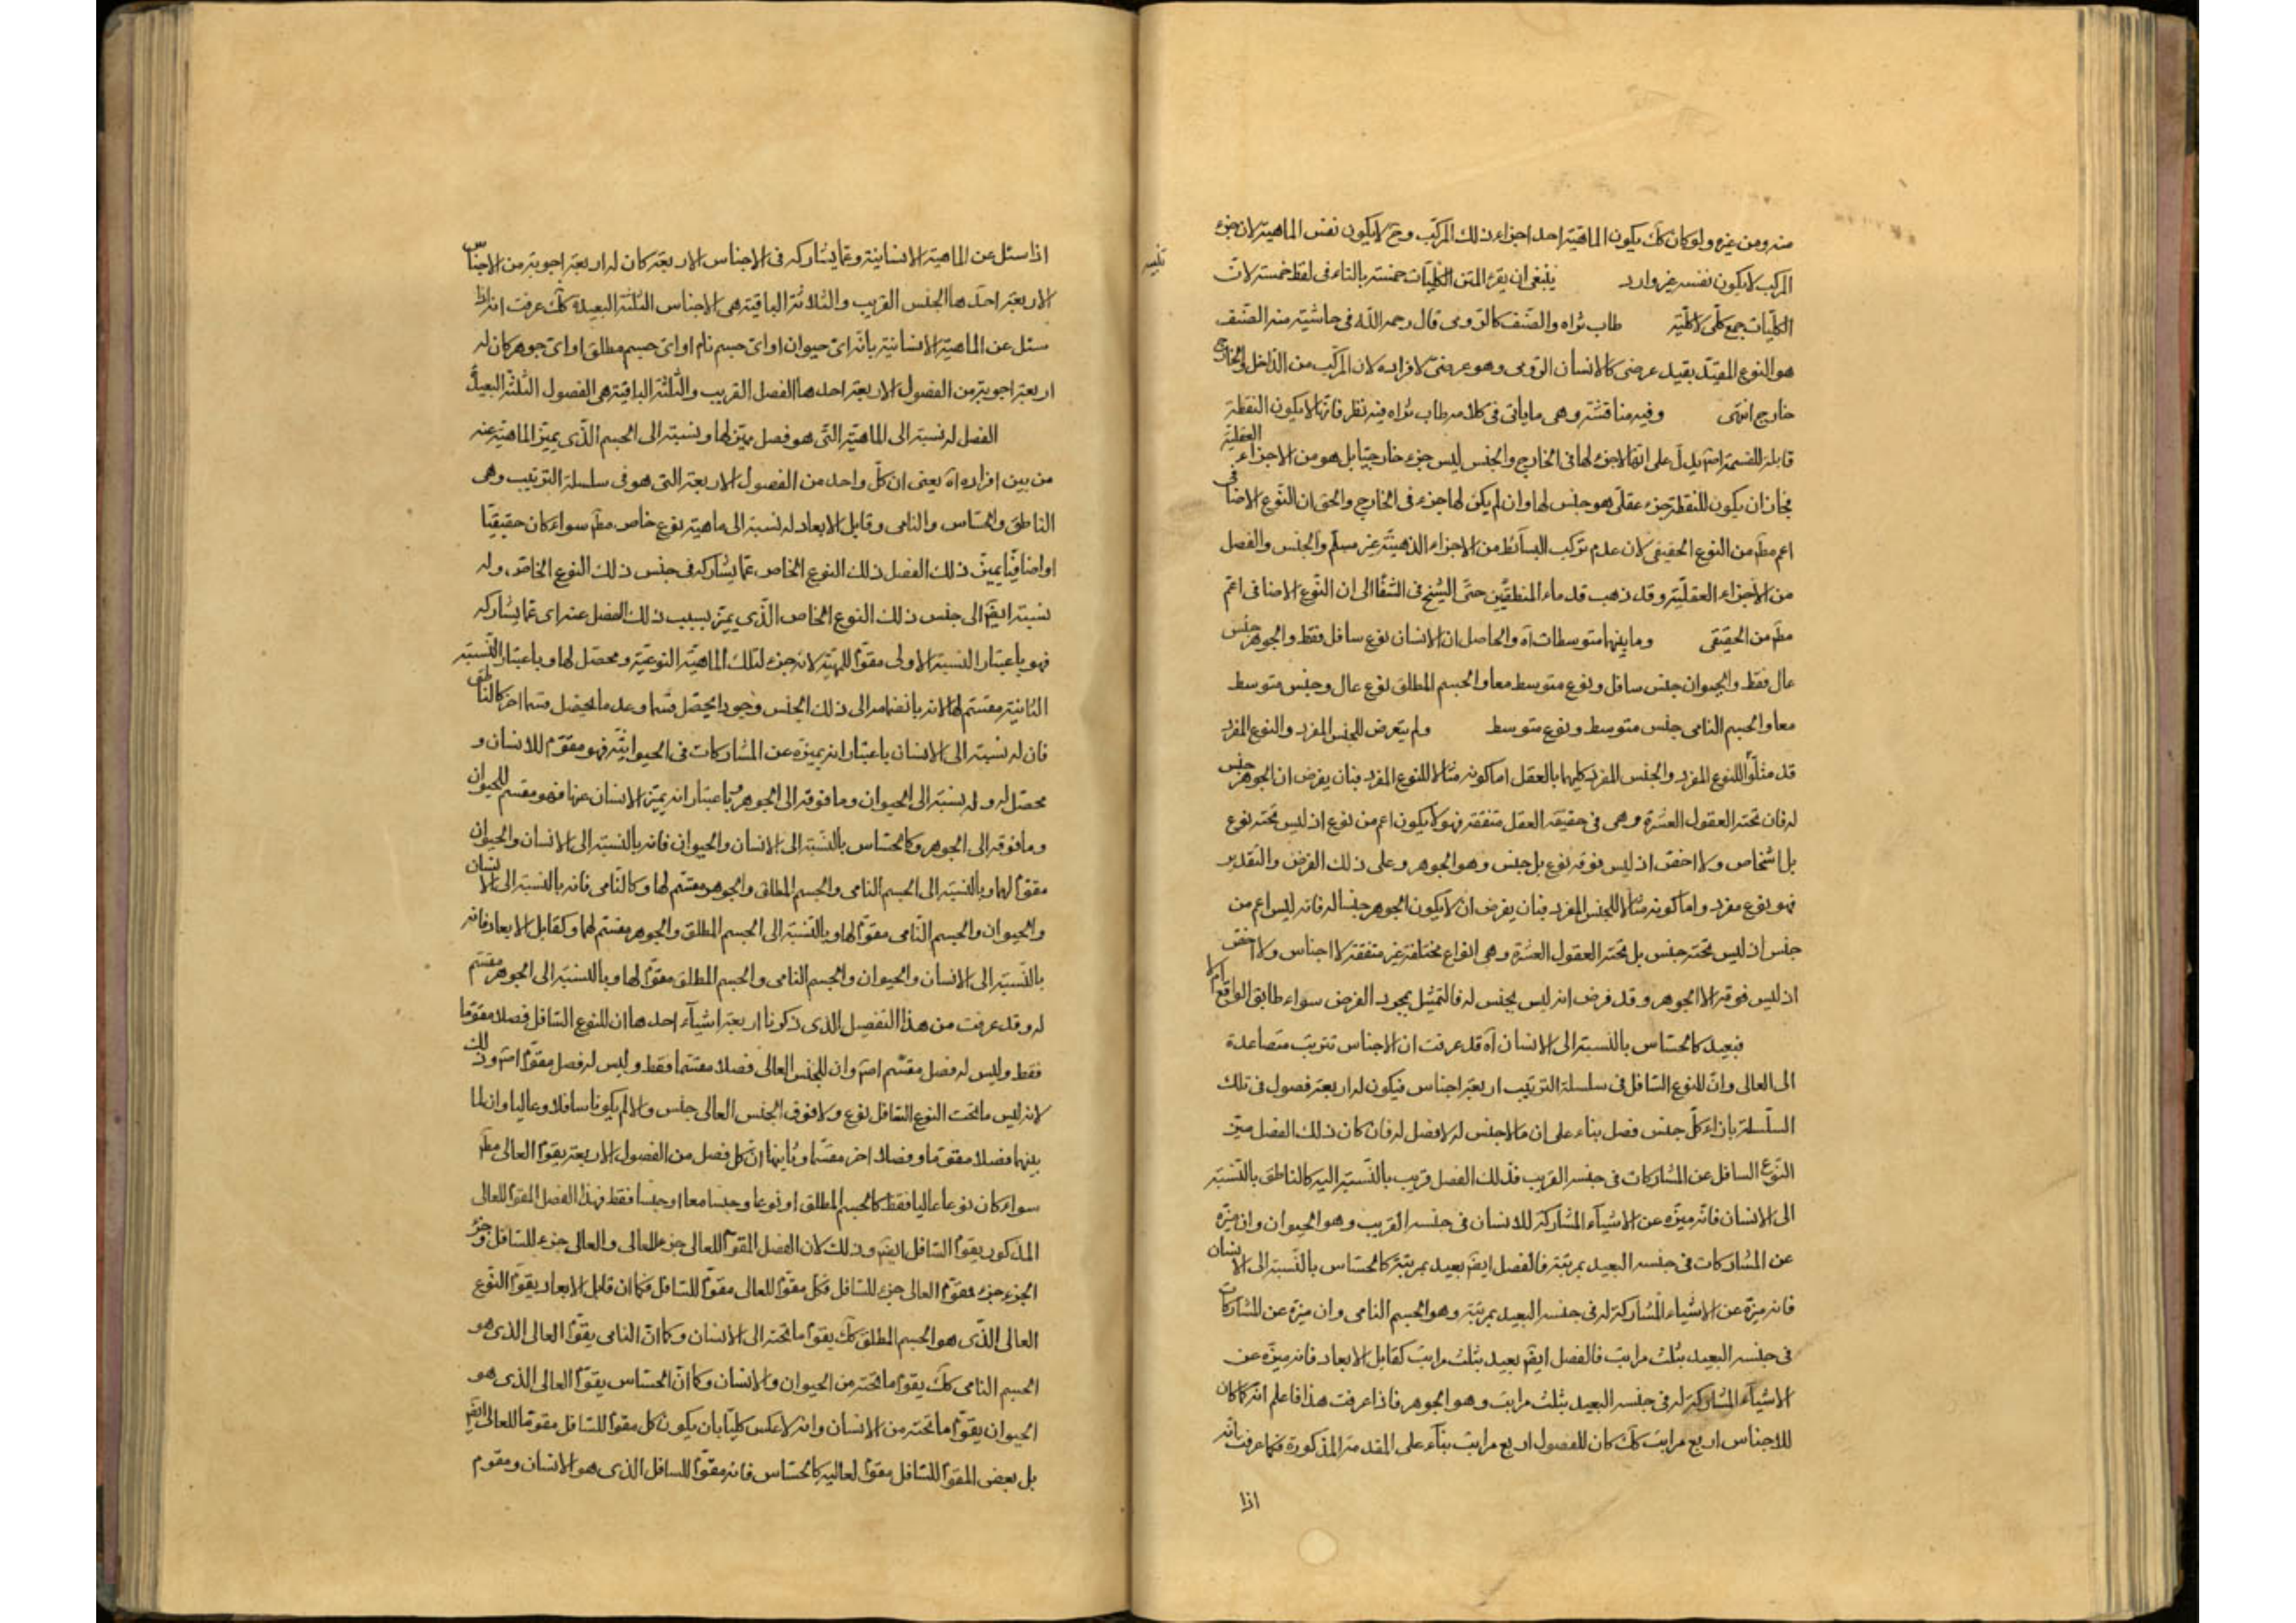 منه ومن غيره ولو كان كك يكون الماهية احد اجزاء ذلك المركب وح لا يكون نفس الماهية لان جزء
المركب لا يكون نفسه غير وارد ينبغى ان يقرء المتن الكليات خمسة بالتاء فى لفظ خمسة لان
تنبيه
الكليات جمع كلى لا كلية طاب ثراه والصنف كالرومى قال رحمه الله فى حاشية منه الصنف
هو النوع المقيد بقيد عرضى كالانسان الرومى وهو عرضى لافراده لان المركب من الداخل والخارج
خارج انتهى وفيه مناقشة وهى ما ياتى فى كلامه طاب ثراه فيه نظر فانها لا يكون النقطة
قابلة للقسمة اصم يدل على انها لا جزء لها فى الخارج والجنس ليس جزء خارجيا بل هو من الاجزاء العقلية
فجاز ان يكون للنقطة جزء عقلى هو جنس لها وان لم يكن لها جزء فى الخارج والحق ان النوع الاضافى
اعم مطم من النوع الحقيقى لان عدم تركب البسائط من الاجزاء الذهنية غير مسلم والجنس والفصل
من الاجزاء العقلية وقد ذهب قدماء المنطقيين حتى الشيخ فى الشفا الى ان النوع الاضافى اعم
مطم من الحقيقى وما بينهما متوسطات آه والحاصل ان الانسان نوع سافل فقط والجوهر جنس
عال فقط والحيوان جنس سافل ونوع متوسط معا والجسم المطلق نوع عال وجنس متوسط
معا والجسم النامى جنس متوسط ونوع متوسط ولم يتعرض للجنس المفرد والنوع المفرد
قد مثلوا للنوع المفرد والجنس المفرد كليهما بالعقل اما كونه مثالا للنوع المفرد فبان يفرض ان الجوهر جنس
له فان تحته العقول العشرة وهى فى حقيقة العقل متفقة فهو لا يكون اعم من نوع اذ ليس تحته نوع
بل اشخاص ولا اخص اذ ليس فوقه نوع بل جنس وهو الجوهر وعلى ذلك الفرض والتقدير
فهو نوع مفرد واما كونه مثالا للجنس المفرد فبان يفرض ان لا يكون الجوهر جنسا له فانه ليس اعم من
جنس اذ ليس تحته جنس بل تحته العقول العشرة وهى انواع مختلفة غير متفقة لا اجناس ولا اخص
اذ ليس فوقه الا الجوهر وقد فرض انه ليس بجنس له فالتمثيل بمجرد الفرض سواء طابق الواقع ام لا
فبعيد كالحساس بالنسبة الى الانسان آه قد عرفت ان الاجناس تترتب متصاعدة
الى العالى وان للنوع السافل فى سلسلة الترتيب اربعة اجناس فيكون له اربعة فصول فى تلك
السلسلة بازاء كل جنس فصل بناء على ان ما لا جنس له لا فصل له فان كان ذلك الفصل ميز
النوع السافل عن المشاركات فى جنسه القريب فذلك الفصل قريب بالنسبة اليه كالناطق بالنسبة
الى الانسان فانه ميزه عن الاشياء المشاركة للانسان فى جنسه القريب وهو الحيوان وان ميزه
عن المشاركات فى جنسه البعيد بمرتبة فالفصل ايضم بعيد بمرتبة كالحساس بالنسبة الى الانسان
فانه ميزه عن الاشياء المشاركة له فى جنسه البعيد بمرتبة وهو الجسم النامى وان ميزه عن المشاركات
فى جنسه البعيد بثلث مراتب فالفصل ايضم بعيد بثلث مراتب كقابل الابعاد فانه ميزه عن
الاشياء المشاركة له فى جنسه البعيد بثلث مراتب وهو الجوهر فاذا عرفت هذا فاعلم انه كما كان
للاجناس اربع مراتب كك كان للفصول اربع مراتب بناء على المقدمة المذكورة فكما عرفت انه
اذا
اذا سئل عن الماهية الانسانية وعما يشاركه فى الاجناس الاربعة كان له اربعة اجوبة من الاجناس
الاربعة احدها الجنس القريب والثلاثة الباقية هى الاجناس الثلثة البعيدة كك عرفت انه اذا
سئل عن الماهية الانسانية بانه اى حيوان او اى جسم نام او اى جسم مطلق او اى جوهر كان له
اربعة اجوبة من الفصول الاربعة احدها الفصل القريب والثلثة الباقية هى الفصول الثلثة البعيدة
الفصل له نسبة الى الماهية التى هو فصل مميز لها ونسبته الى الجسم الذى يميز الماهية عنه
من بين افراده آه يعنى ان كل واحد من الفصول الاربعة التى هو فى سلسلة الترتيب وهى
الناطق والحساس والنامى وقابل الابعاد له نسبة الى ماهية نوع خاص مطم سواء كان حقيقيا
او اضافيا يميز ذلك الفصل ذلك النوع الخاص عما يشاركه فى جنس ذلك النوع الخاص وله
نسبة ايضم الى جنس ذلك النوع الخاص الذى يميز بسبب ذلك الفصل عنه اى عما يشاركه
فهو باعتبار النسبة الاولى مقوم للمهية لانه جزء لتلك الماهية النوعية ومحصل لها وباعتبار النسبة
الثانية مقسم لها لانه بانضمامه الى ذلك الجنس وجودا يحصل قسما وعدما يحصل قسما اخر كالناطق
فان له نسبة الى الانسان باعتبار انه يميزه عن المشاركات فى الحيوانية فهو مقوم للانسان و
محصل له وله نسبة الى الحيوان وما فوقه الى الجوهر باعتبار انه يميز الانسان عنها فهو مقسم للحيوان
وما فوقه الى الجوهر وكالحساس بالنسبة الى الانسان والحيوان فانه بالنسبة الى الانسان والحيوان
مقوم لهما وبالنسبة الى الجسم النامى والجسم المطلق والجوهر مقسم لها وكالنامى فانه بالنسبة الى الانسان
والحيوان والجسم النامى مقوم لها وبالنسبة الى الجسم المطلق والجوهر مقسم لهما وكقابل الابعاد فانه
بالنسبة الى الانسان والحيوان والجسم النامى والجسم المطلق مقوم لها وبالنسبة الى الجوهر مقسم
له وقد عرفت من هذا التفصيل الذى ذكرنا اربعة اشياء احدها ان للنوع السافل فصلا مقوما
فقط وليس له فصل مقسم اصم وان للجنس العالى فصلا مقسما فقط وليس له فصل مقوم اصم وذلك
لانه ليس ما تحت النوع السافل نوع ولا فوق الجنس العالى جنس والا لم يكونا سافلا وعاليا وان لما
بينهما فصلا مقوما وفصلا اخر مقسما وثانيها ان كل فصل من الفصول الاربعة يقوم العالى مطم
سواء كان نوعا عاليا فقط كالجسم المطلق او نوعا وجنسا معا او جنسا فقط فهذا الفصل المقوم للعالى
المذكور يقوم السافل ايضم وذلك لان الفصل المقوم للعالى جزء للعالى والعالى جزء للسافل وجزء
الجزء جزء فمقوم العالى جزء للسافل فكل مقوم للعالى مقوم للسافل فكما ان قابل الابعاد يقوم النوع
العالى الذى هو الجسم المطلق كك يقوم ما تحته الى الانسان وكما ان النامى يقوم العالى الذى هو
الجسم النامى كك يقوم ما تحته من الحيوان والانسان وكما ان الحساس يقوم العالى الذى هو
الحيوان يقوم ما تحته من الانسان وانه لا عكس كليا بان يكون كل مقوم للسافل مقوما للعالى ايضم
بل بعض المقوم للسافل مقوم لعاليه كالحساس فانه مقوم للسافل الذى هو الانسان ومقوم